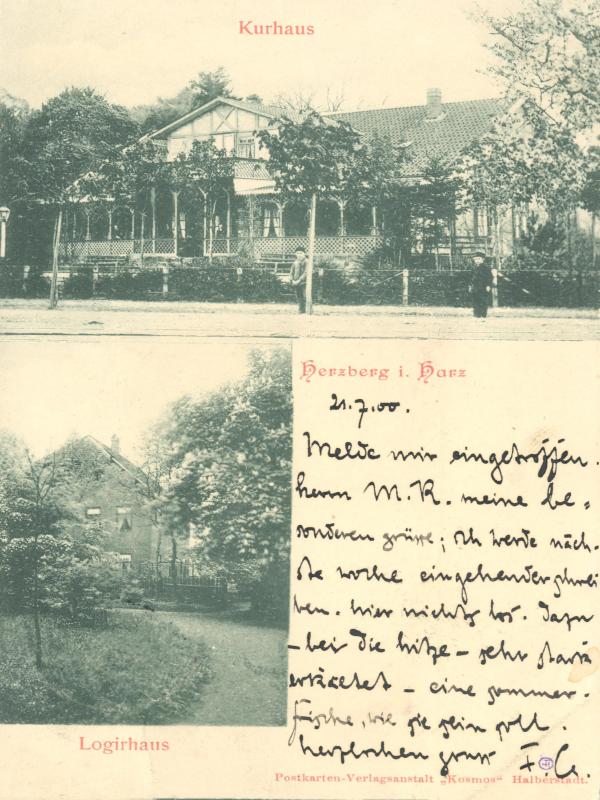 Kurhaus
Herzberg i. Harz
21.7.00.
Melde mir eingetroffen.
herrn M. K. meine be-
sonderen grüsse; ich werde näch-
ste woche eingehender schrei
ben. hier nichts los. Dazu
- bei die hitze - sehr stark
erkältet - eine sommer-
frische, wie sie sein soll.
herzlichen gruss
Logirhaus
Postkarten-Verlagsanstalt „Kosmos“ Halberstadt.